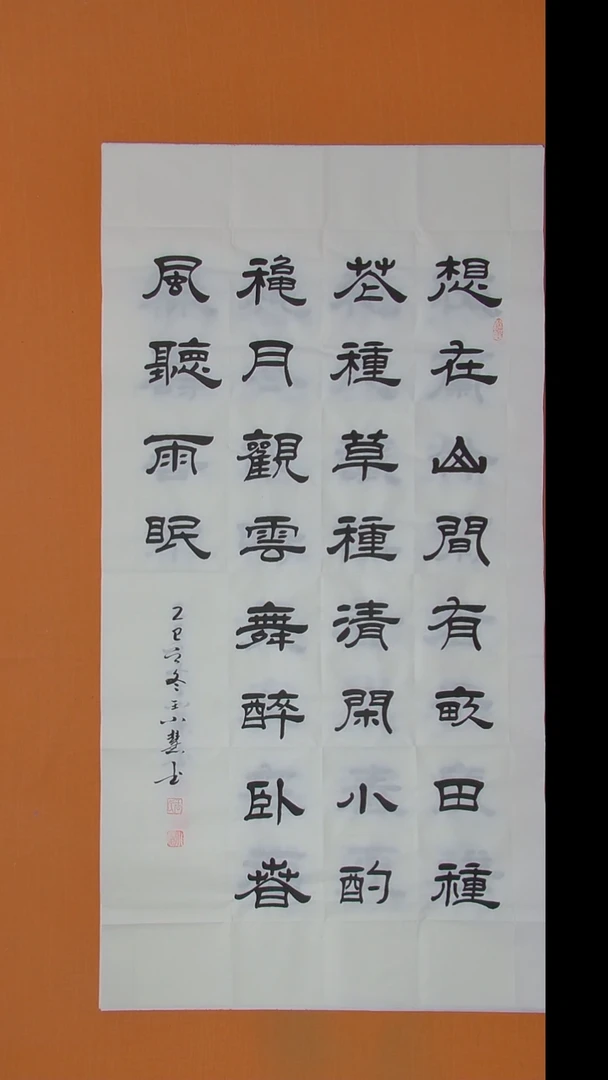 想在山間有畝田種
花種草種清閑小酌
穐月觀雲舞醉臥春
風聽雨眠
乙巳立冬王小慧书